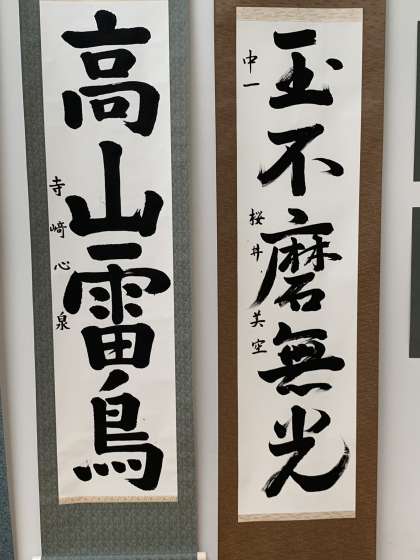 玉不磨無光
中一 桜井美空
高山雷鳥
寺﨑心泉